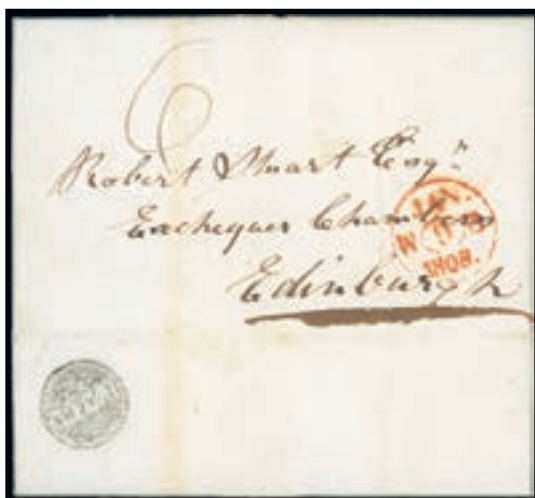 6
Robert Stuart Esqr.
Exchequer Chambers
Edinburgh
JAN.
W 11
1808.